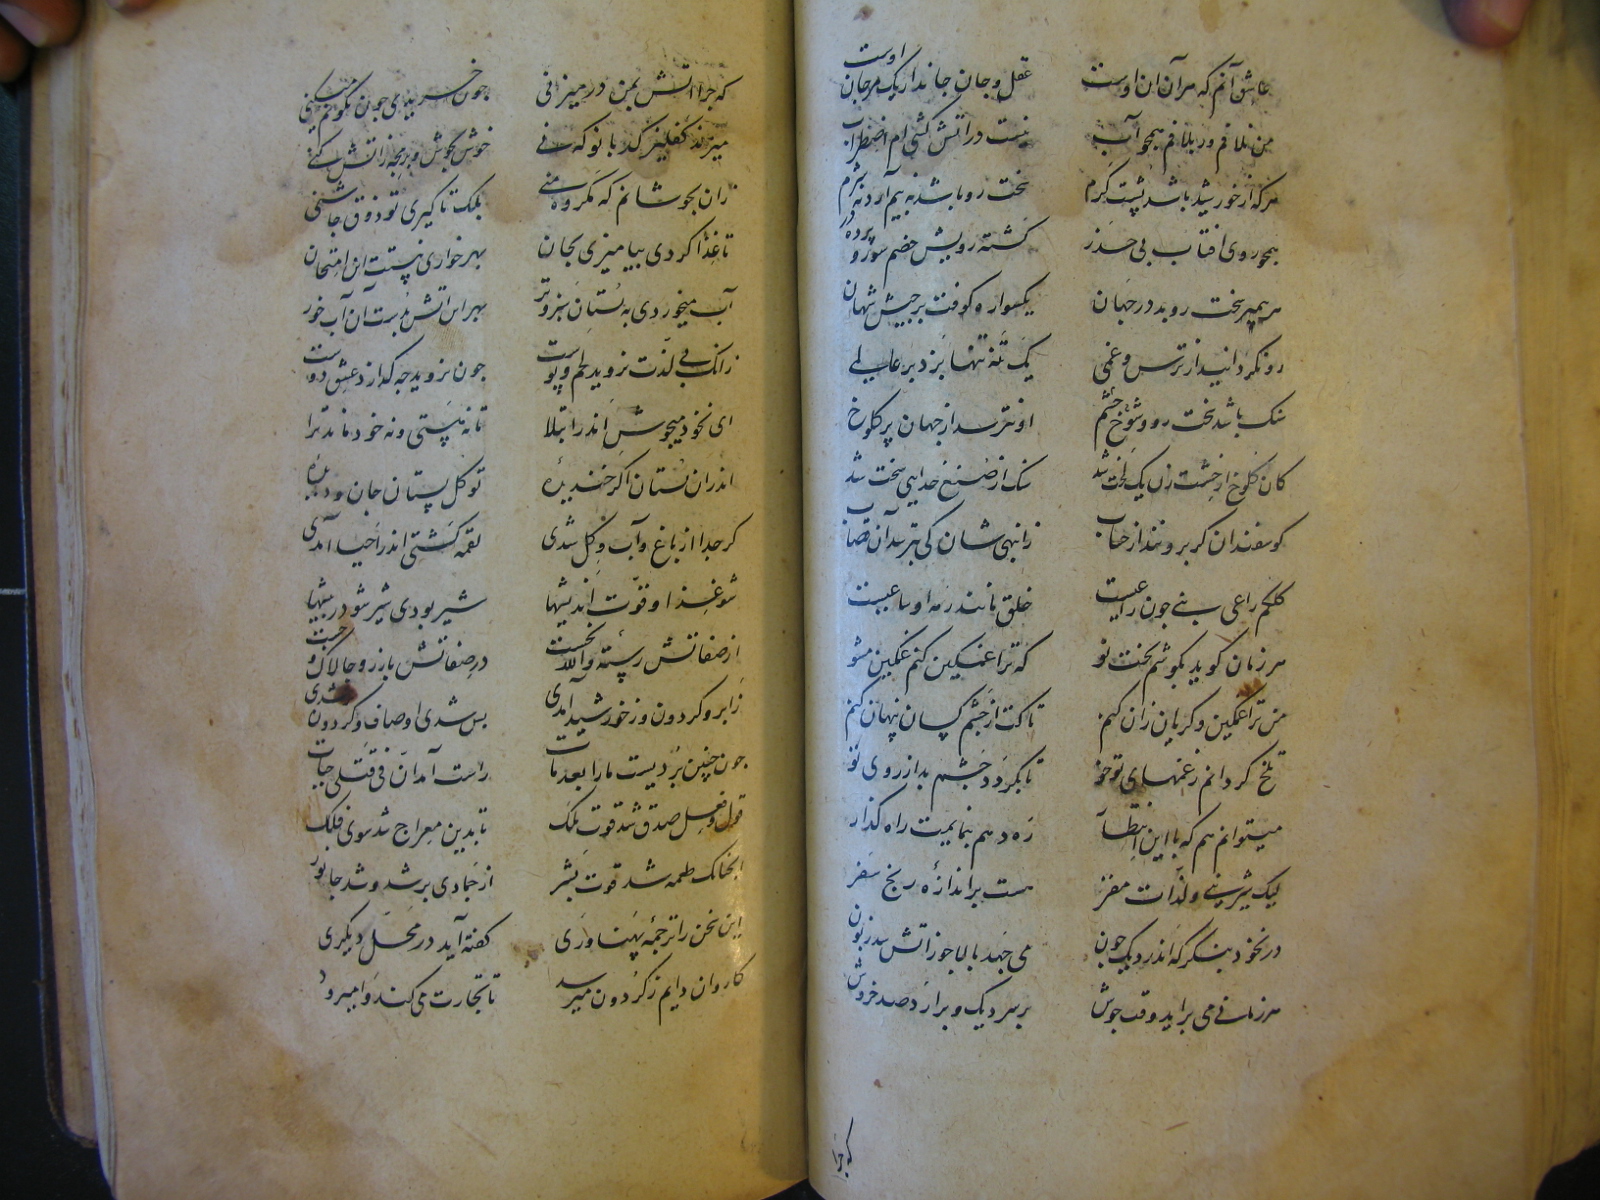 عاشق آنم که هر آن آن اوست عقل و جان جاندار یک مرجان اوست
من نلافم ور بلافم همچو آب نیست در اتش کشی ام اضطراب
هرکه از خورشید باشد پشت کرم سخت رو باشد نه بیم او را نه شرم
همچو روی افتاب بی حذر کشته رویش خصم سوز و پرده در
هر پیمبر سخت رو بد در جهان یکسواره کوفت بر جیش شهان
رو نکردانید از ترس و غمی یک تنه تنها بزد بر عالمی
سنک باشد سخت رو و شوخ چشم او نترسد از جهان پر کلوخ
کان کلوخ از خشت زن یک لخت شد سنک از صنع خدایی سخت شد
کوسفندان کر برونند از حساب زانبهی شان کی بترسد آن قصاب
کلکم راعی نبی چون راعیست خلق مانند رمه او ساعیست
هر زمان کوید بکوشم بخت نو که ترا غمکین کنم غمکین مشو
من ترا غمکین و کریان زان کنم تا کت از چشم کسان پنهان کنم
تلخ کردانم ز غمهای تو خو تا بکردد چشم بد از روی تو
میتوانم هم که با این انتظار ره دهم بنمایمت راه کذار
لیک شیرینی و لذات مقر هست بر اندازه رنج سفر
در نخود بنکر که اندر دیک چون می جهد بالا چو ز اتش شد زبون
هر زمانی می براید وقت جوش بر سر دیک و برارد صد خروش
که چرا
که چرا اتش بمن در میزنی چون خریدی چون نکونم میکنی
میزند کفلیز کدبانو که نی خوش بجوش و بر مجه ز اتش کنی
زان نجوشانم که مکروه منی بلک تا کیری تو ذوق چاشنی
تا غذا کردی بیامیزی بجان بهر خواری نیست این امتحان
آب میخوردی به بستان سبز و تر بهر این اتش بدست آن آب خور
زانک بی لذت نروید لحم و پوست چون نروید چه کدازد عشق دوست
ای نخود میجوش اندر ابتلا تا نه هستی و نه خود ماند ترا
اندران بستان اکر خندیده تو کل بستان جان و دیده
کر جدا از باغ و آب و کل شدی لقمه کشتی اندر احیا آمدی
شو غذا و قوت اندیشها شیر بودی شیر شو در بیشها
از صفاتش رسته والله نخست در صفاتش باز رو چالاک و چست
ز ابر و کردون و ز خورشید آمدی بس شدی اوصاف و کردون شدی
چون چنین بردیست ما را بعد مات راست آمد ان فی قتلی حیات
قول و فعل صدق شد قوت ملک تا بدین معراج شد سوی فلک
انچنانک طعمه شد قوت بشر از جمادی بر شد و شد جانور
این سخن را ترجمه پهناوری کفته آید در محل دیکری
کاروان دایم ز کردون میرسد تا تجارت می کند وا میرود